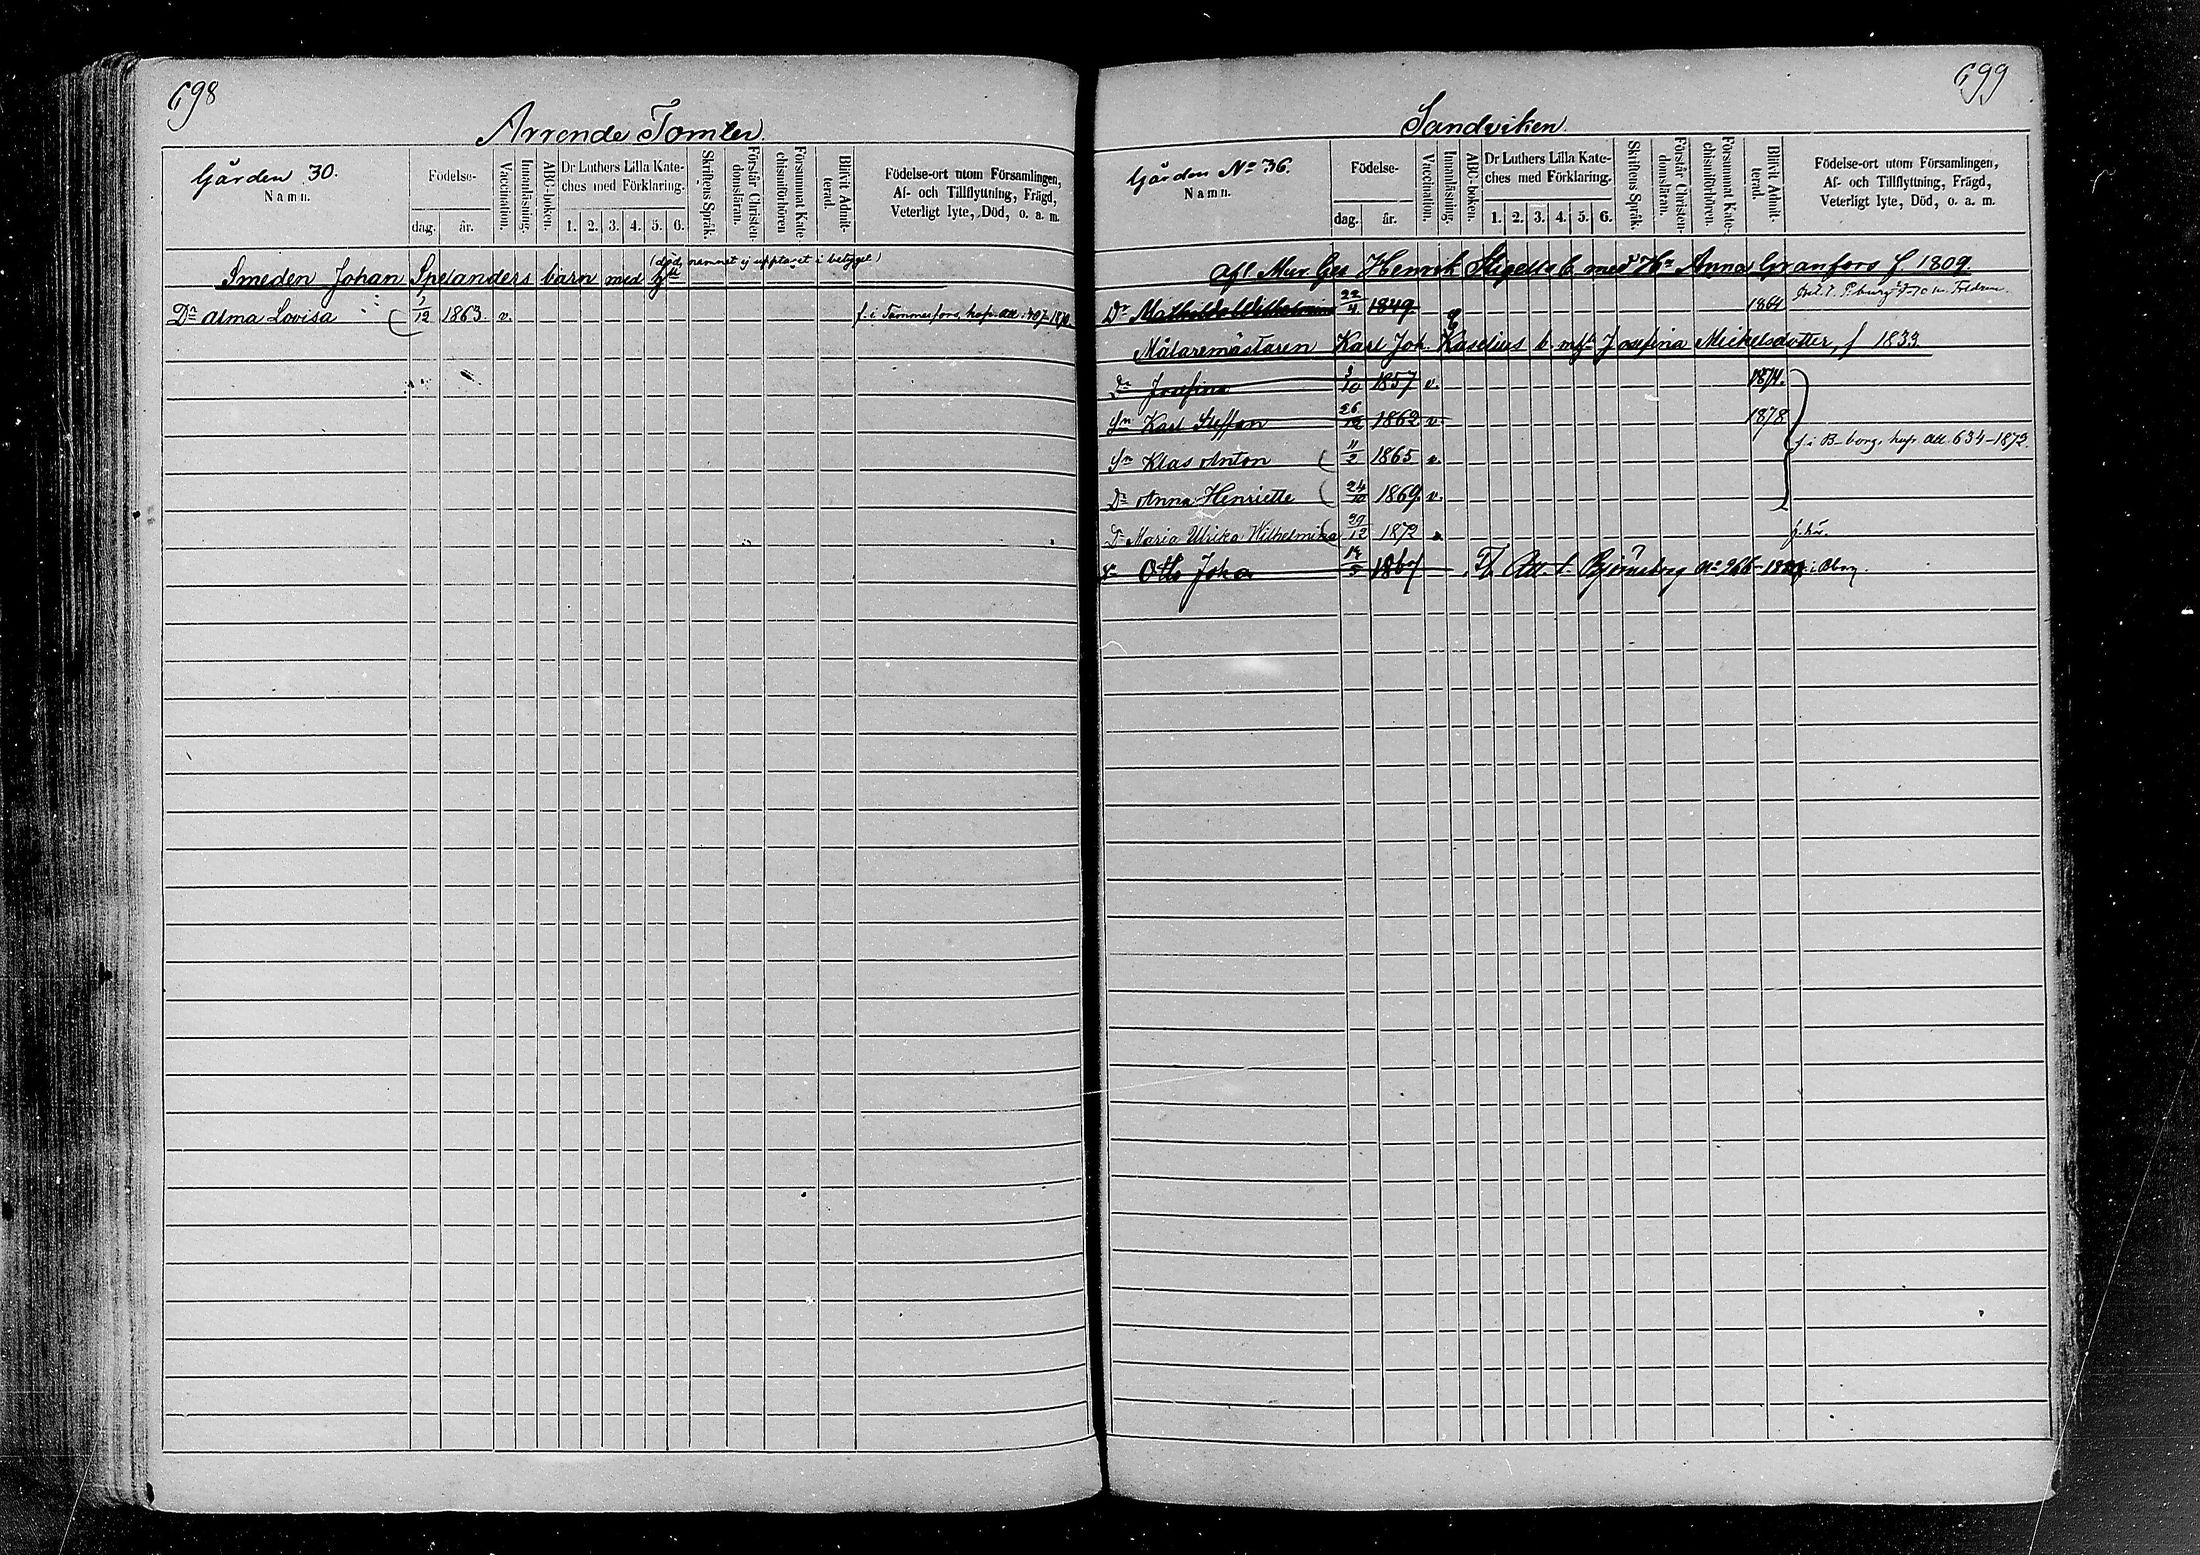 698
Arrende Tomter.
Gården 30.
Namn.
Födelse-
dag.
år.
Vaccination.
Innanläsning.
ABC-boken.
Dr Luthers Lilla Kate-
ches med Förklaring.
1. 2. 3. 4. 5. 6.
Skriftens Språk.
Förstår Christen-
domsläran.
Försummat Kate-
chismiförhören
Blifvit Admit-
terad.
Födelse-ort utom Församlingen,
Af- och Tillflyttning, Frägd,
Veterligt lyte, Död, o. a. m.
(död, namnet ej upptaget i betyget)
Smeden Johan Spelanders barn med
Dr Alma Lovisa 1/12 1863 v. f. i Tammerfors, 1870
699
Sandviken.
Gården No 36.
Namn.
Födelse-
dag.
år.
Vaccination.
Innanläsning.
ABC-boken.
Dr Luthers Lilla Kate-
ches med Förklaring.
1. 2. 3. 4. 5. 6.
Skriftens Språk.
Förstår Christen-
domsläran.
Försummat Kate-
chismiförhören.
Blifvit Admit-
terad.
Födelse-ort utom Församlingen,
Af- och Tillflyttning, Frägd,
Veterligt lyte, Död, o. a. m.
Afl. Mur. Ges Henrik b. med Anna Granfors f 1809
Dr Mathilda Wilhelmina 22/4 1849 1864
Målaremästaren Karl Joh. Kaselius b. m. Josefina Mickelsdotter, f 1833.
Dr Josefina 1857 v. 1874.
Sn Karl Steffan 26/12 1862 v. 1878
f. i B-borg, 634-1873.
Sn Klas Anton 11/2 1865 v.
Dr Anna Henriette 24/10 1869 v.
Dr Maria Ulrika Wilhelmina 29/12 1872 f. här.
Sn Otto Joha Att. t. Björneborg No 266